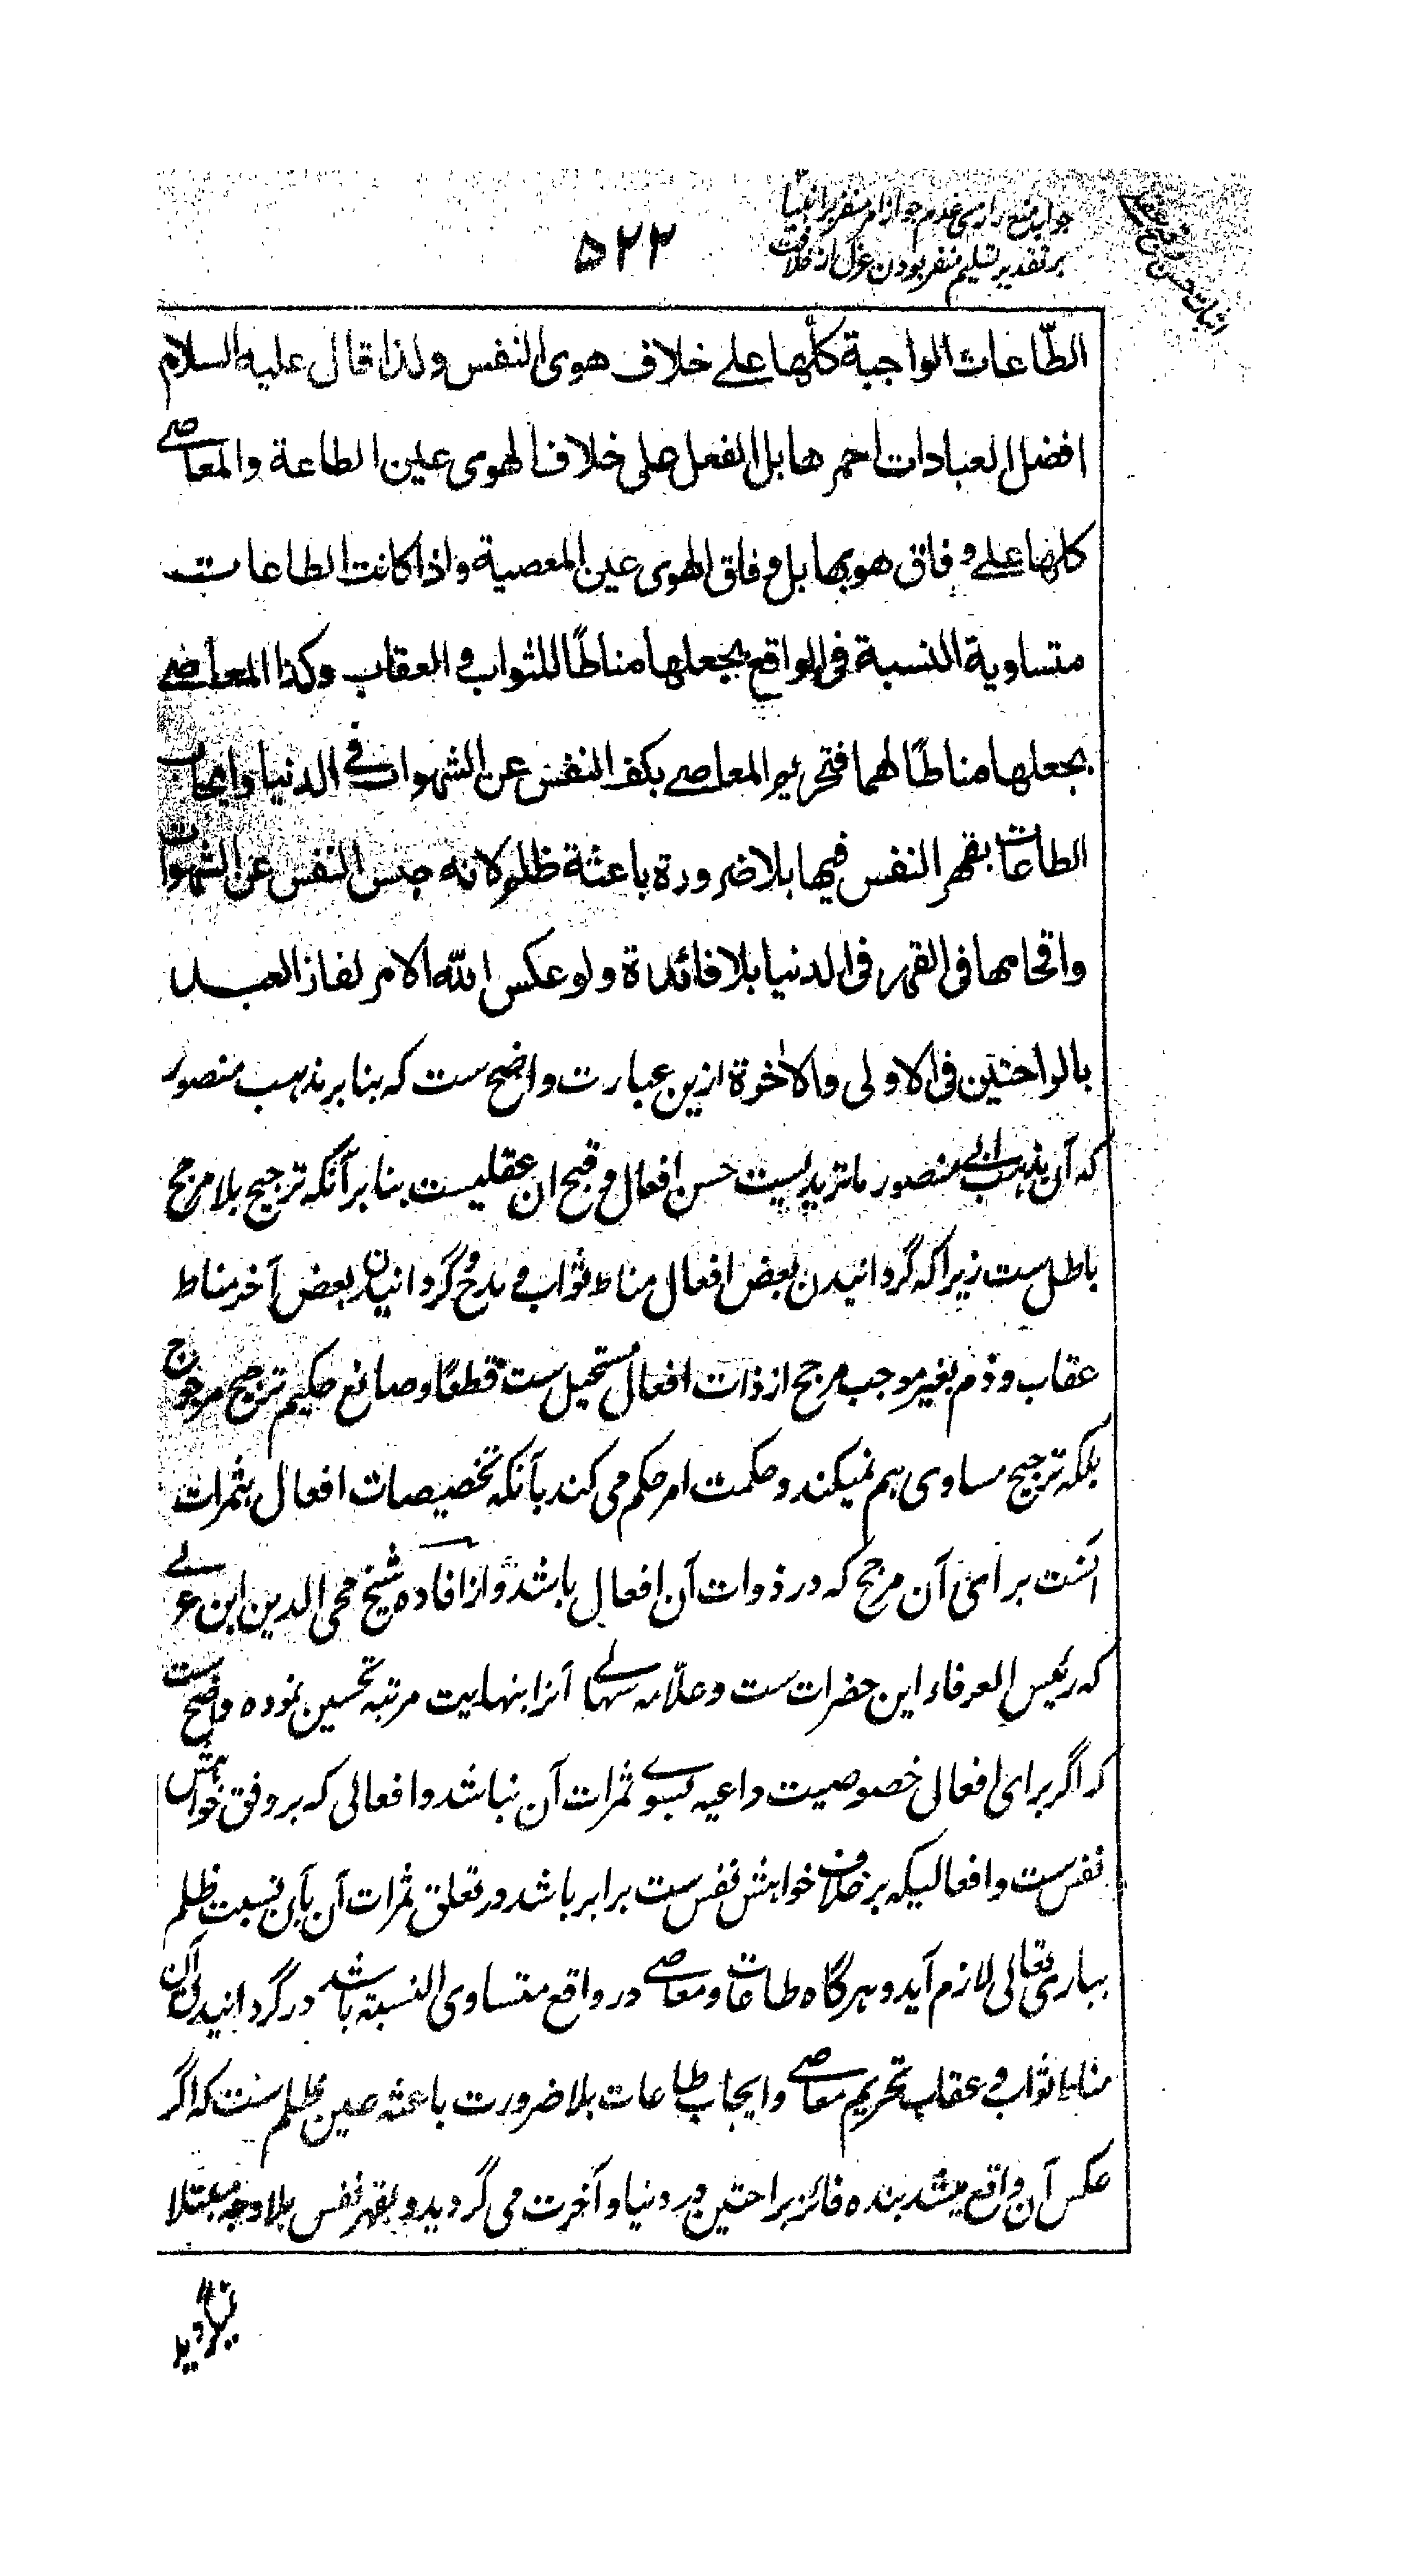 جواب منع رازی عدم جواز امر منفر بر انبیا
بر تقدیر تسلیم منفر بودن عزل از خلافت
۵۲۲
اثبات حسن و قبح عقلی
الطّاعات الواجبة کلّها علے خلاف هوی النفس ولذا قال علیه السلام
افضل العبادات احمزها بل الفعل علی خلاف الهوی عین الطاعة والمعاصے
کلها علے وفاق هویها بل وفاق الهوی عین المعصیة واذا کانت الطاعات
متساویة النسبة فی الواقع بجعلها مناطًا للثواب و العقاب وکذا المعاصے
بجعلها مناطًا لهما فتحریم المعاصے بکف النفس عن الشهوات فے الدنیا وایجاب
الطاعات بقهر النفس فیها بلا ضرورة باعثة ظلم لانه حبس النفس عن الشهوات
واقحامها فی القهر فی الدنیا بلا فائدة ولو عکس الله الامر لفاز العبد
بالراحتین فی الاولی والاخرة ازین عبارت واضح ست که بنا بر مذهب منصور
که آن مذهب ابی منصور ماتریدیست حسن افعال و قبح ان عقلیست بنا بر آنکه ترجیح بلا مرجح
باطل ست زیرا که گردانیدن بعض افعال مناط ثواب و مدح و گردانیدن بعض آخر مناط
عقاب و ذم بغیر موجب مرجح از ذات افعال مستحیل ست قطعًا و صانع حکیم ترجیح مرجوح
بلکه ترجیح مساوی هم نمیکند و حکمت امر حکم می کند بآنکه تخصیصات افعال بثمرات
آنست برای آن مرجح که در ذوات آن افعال باشد و از افاده شیخ محی الدین ابن عربے
که رئیس العرفاء این حضرات ست و علّامه سهالے آنرا بنهایت مرتبه تحسین نموده واضح ست
که اگر برای افعالی خصوصیت داعیه بسوے ثمرات آن نباشد و افعالی که بر وفق خواهش
نفس ست و افعالیکه بر خلاف خواهش نفس ست برابر باشد در تعلق ثمرات آن بآن نسبت ظلم
بباری تعالی لازم آید و هر گاه طاعات و معاصے در واقع متساوی النسبة باشد در گردانیدن آن
مناط ثواب و عقاب تحریم معاصے و ایجاب طاعات بلا ضرورت باعثه عین ظلم ست که اگر
عکس آن واقع میشد بنده فائز براحتین در دنیا و آخرت می گردید و بقهر نفس بلا وجه مبتلا